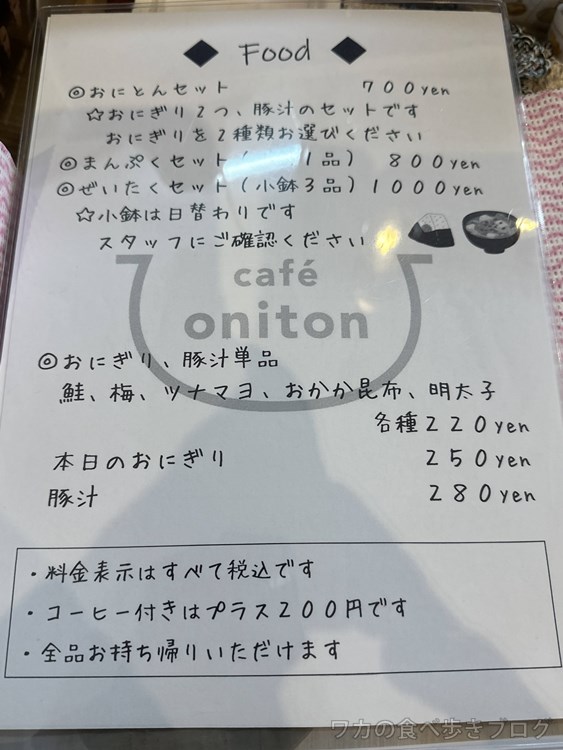 ◆ Food ◆
◎おにとんセット 700yen
☆おにぎり2つ、豚汁のセットです
おにぎりを2種類お選びください
◎まんぷくセット(1品) 800yen
◎ぜいたくセット(小鉢3品) 1000yen
☆小鉢は日替わりです
スタッフにご確認ください
café
oniton
◎おにぎり、豚汁単品
鮭、梅、ツナマヨ、おかか昆布、明太子
各種220yen
本日のおにぎり 250yen
豚汁 280yen
・料金表示はすべて税込です
・コーヒー付きはプラス200円です
・全品お持ち帰りいただけます
ワカの食べ歩きブログ